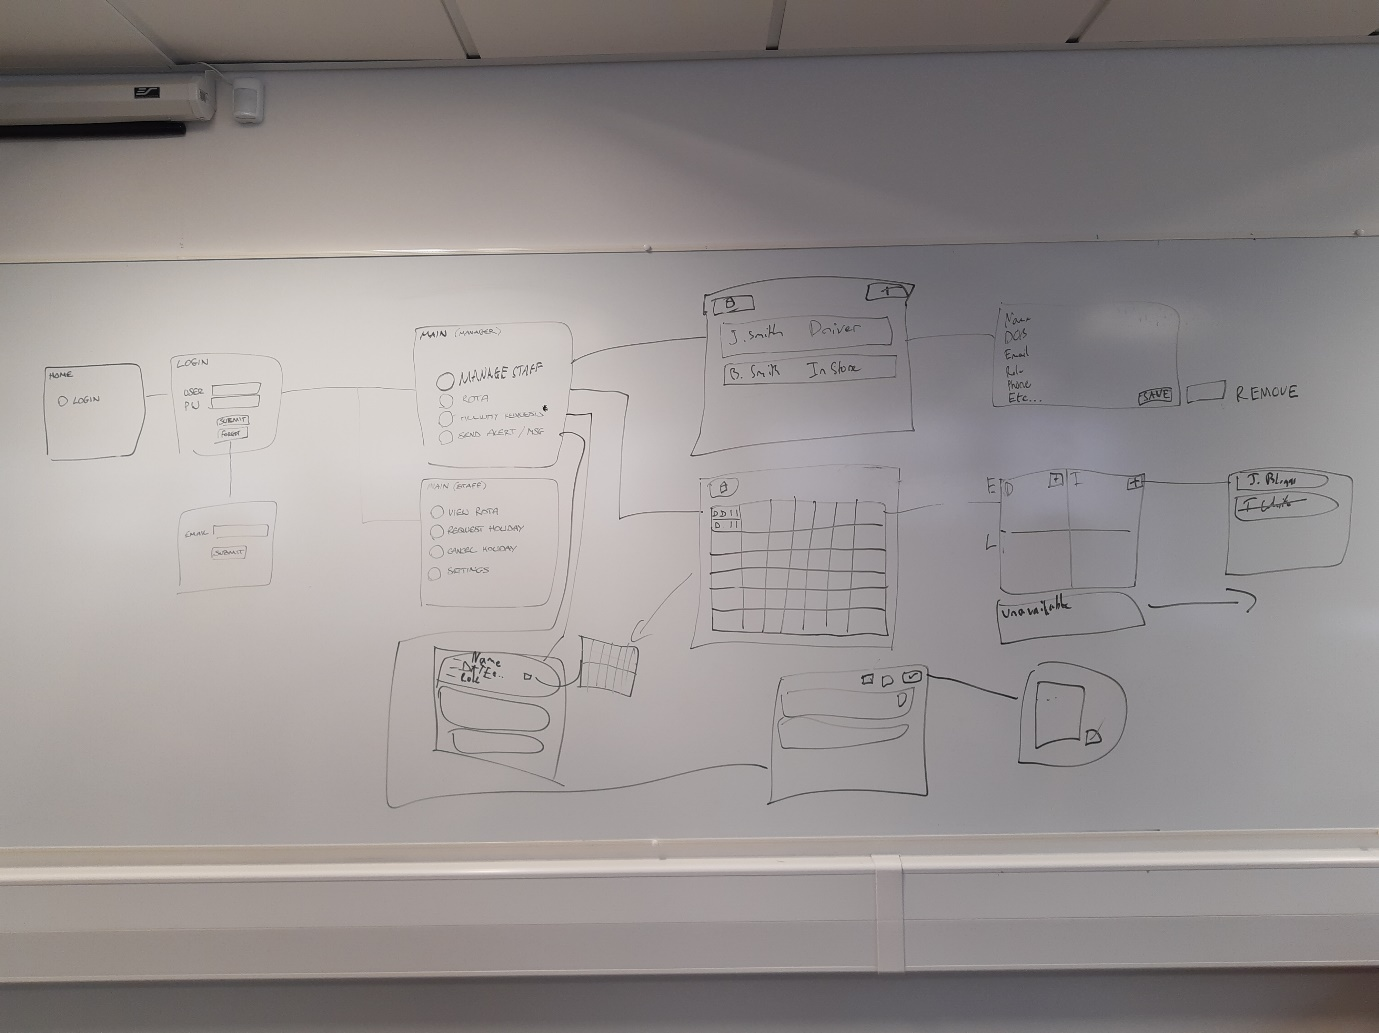 HOME
LOGIN
LOGIN
USER
PW
SUBMIT
FORGOT
EMAIL
SUBMIT
MAIN (MANAGER)
MANAGE STAFF
ROTA
HOLIDAY REQUESTS
SEND ALERT / MSG
MAIN (STAFF)
VIEW ROTA
REQUEST HOLIDAY
CANCEL HOLIDAY
SETTINGS
+
J. Smith Driver
B. Smith In Store
Name
DOB
Email
Role
Phone
Etc...
SAVE
REMOVE
D D I I
D I I
E
D
+
I
+
L
unavailable
J. Bloggs
- Name
- Role